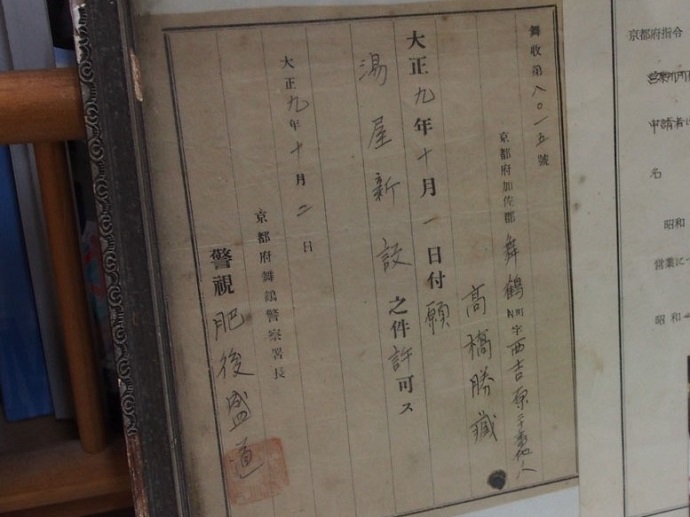 京都府指令
営業所所
申請者
名
昭和
営業につ
昭和
舞収第八〇一五號
京都府加佐郡舞鶴町字西吉原
高橋勝蔵
大正九年十月一日付願
湯屋新設之件許可ス
大正九年十月二日
京都府舞鶴警察署長
警視肥後盛道